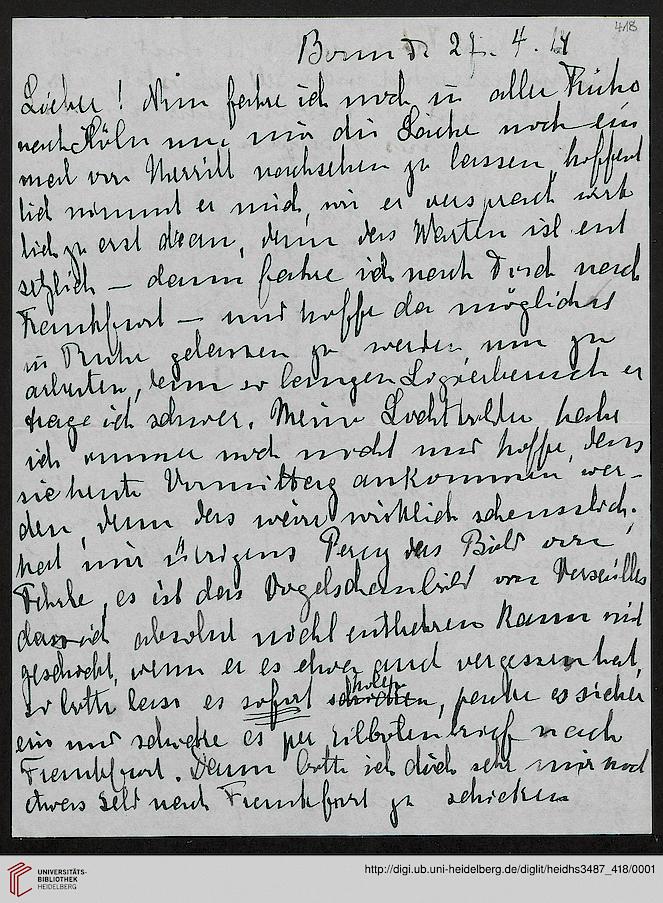 418
Bonn d. 27. 4. 14
Liebe! Nun fahre ich noch in aller Frühe
nach Köln um mir die Sache noch ein
mal von nachsehen zu lassen, hoffent
lich nimmt er mich, wie er versprach wirk
lich zu erst dran, denn das Warten ist ent
setzlich – dann fahre ich nach nach
Frankfurt – und hoffe da möglichst
in Ruhe gelassen zu werden um zu
arbeiten, denn so langen er
trage ich schwer. Meine habe
ich immer noch nicht und hoffe, dass
sie heute Vormittag ankommen wer-
den, denn das wäre wirklich scheusslich.
hat mir übrigens Percy das Bild von
es ist das Vogelschaubild von Versailles
das ich absolut nicht entbehren kann mit
geschickt, wenn er es etwa vergessen hat,
so bitte lass es sofort holen, packe es sicher
ein und schicke es per Eilbotenbrief nach
Frankfurt. Dann bitte ich dich sehr mir noch
etwas Geld nach Frankfurt zu schicken
UNIVERSITÄTS-
BIBLIOTHEK
HEIDELBERG
http://digi.ub.uni-heidelberg.de/diglit/heidhs3487_418/0001